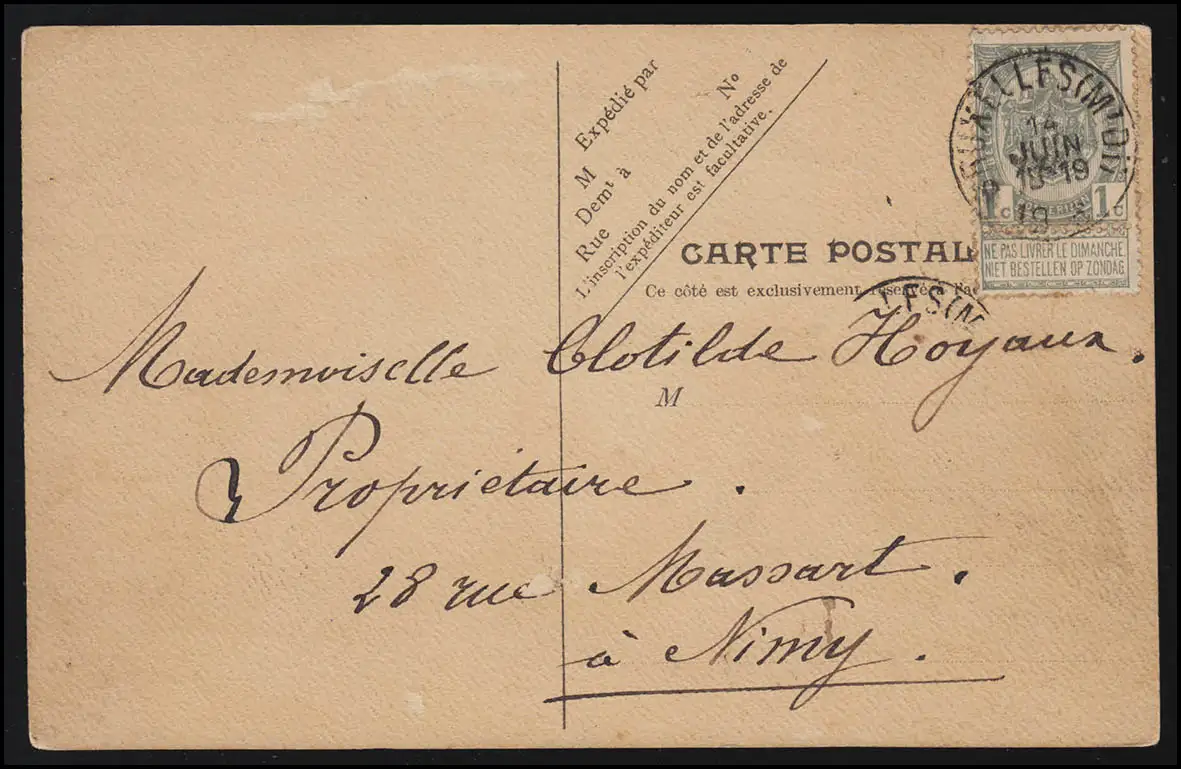 Expédié par
M
Demt à
Rue
No
L'inscription du nom et de l'adresse de
l'expéditeur est facultative.
CARTE POSTAL
Ce côté est exclusivement réservé à l'a
BRUXELLES (MIDI)
JUIN
1c 1c
NE PAS LIVRER LE DIMANCHE
NIET BESTELLEN OP ZONDAG
LES(M
Mademoiselle Clotilde Hoyaux.
M
Propriétaire.
28 rue Massart.
à Nimy.